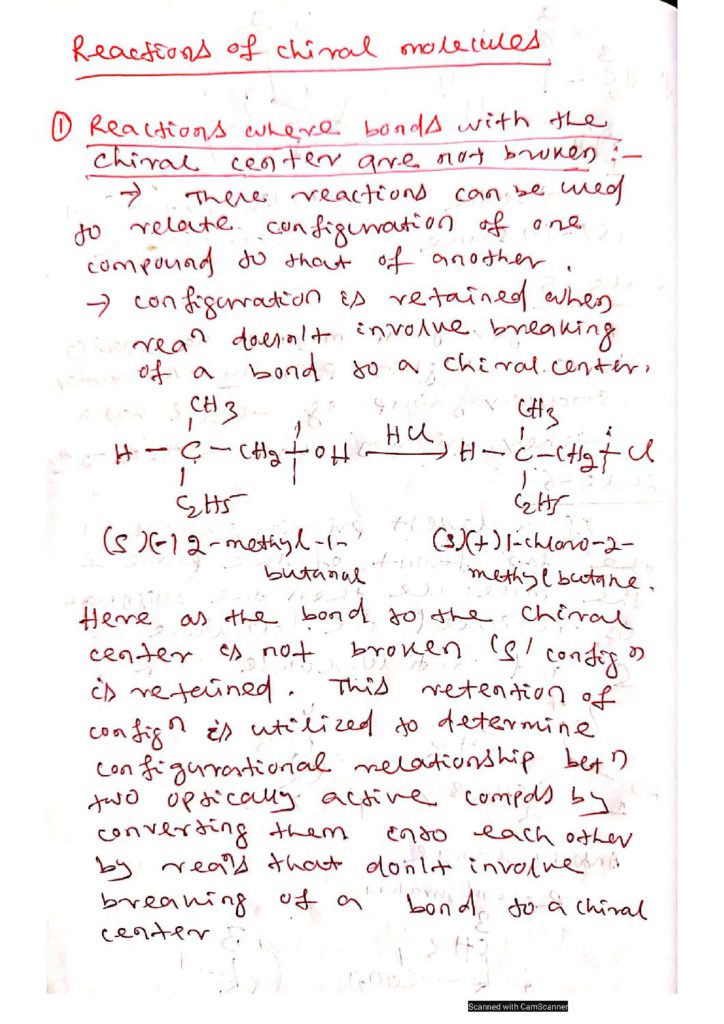 Reactions of chiral molecules
① Reactions where bonds with the
chiral center are not broken :-
→ These reactions can be used
to relate configuration of one
compound to that of another.
→ configuration is retained when
reaⁿ doesn't involve breaking
of a bond to a chiral center.
CH3 CH3
H - C - CH2 + OH HCl → H - C - CH2 + Cl
C2H5 C2H5
(S)(-) 2-methyl-1- (S)(+) 1-chloro-2-
butanal methylbutane.
Here as the bond to the chiral
center is not broken 'S' configⁿ
is retained. This retention of
configⁿ is utilized to determine
configurational relationship betⁿ
two optically active compds by
converting them into each other
by reaⁿs that don't involve
breaking of a bond to a chiral
center.
Scanned with CamScanner